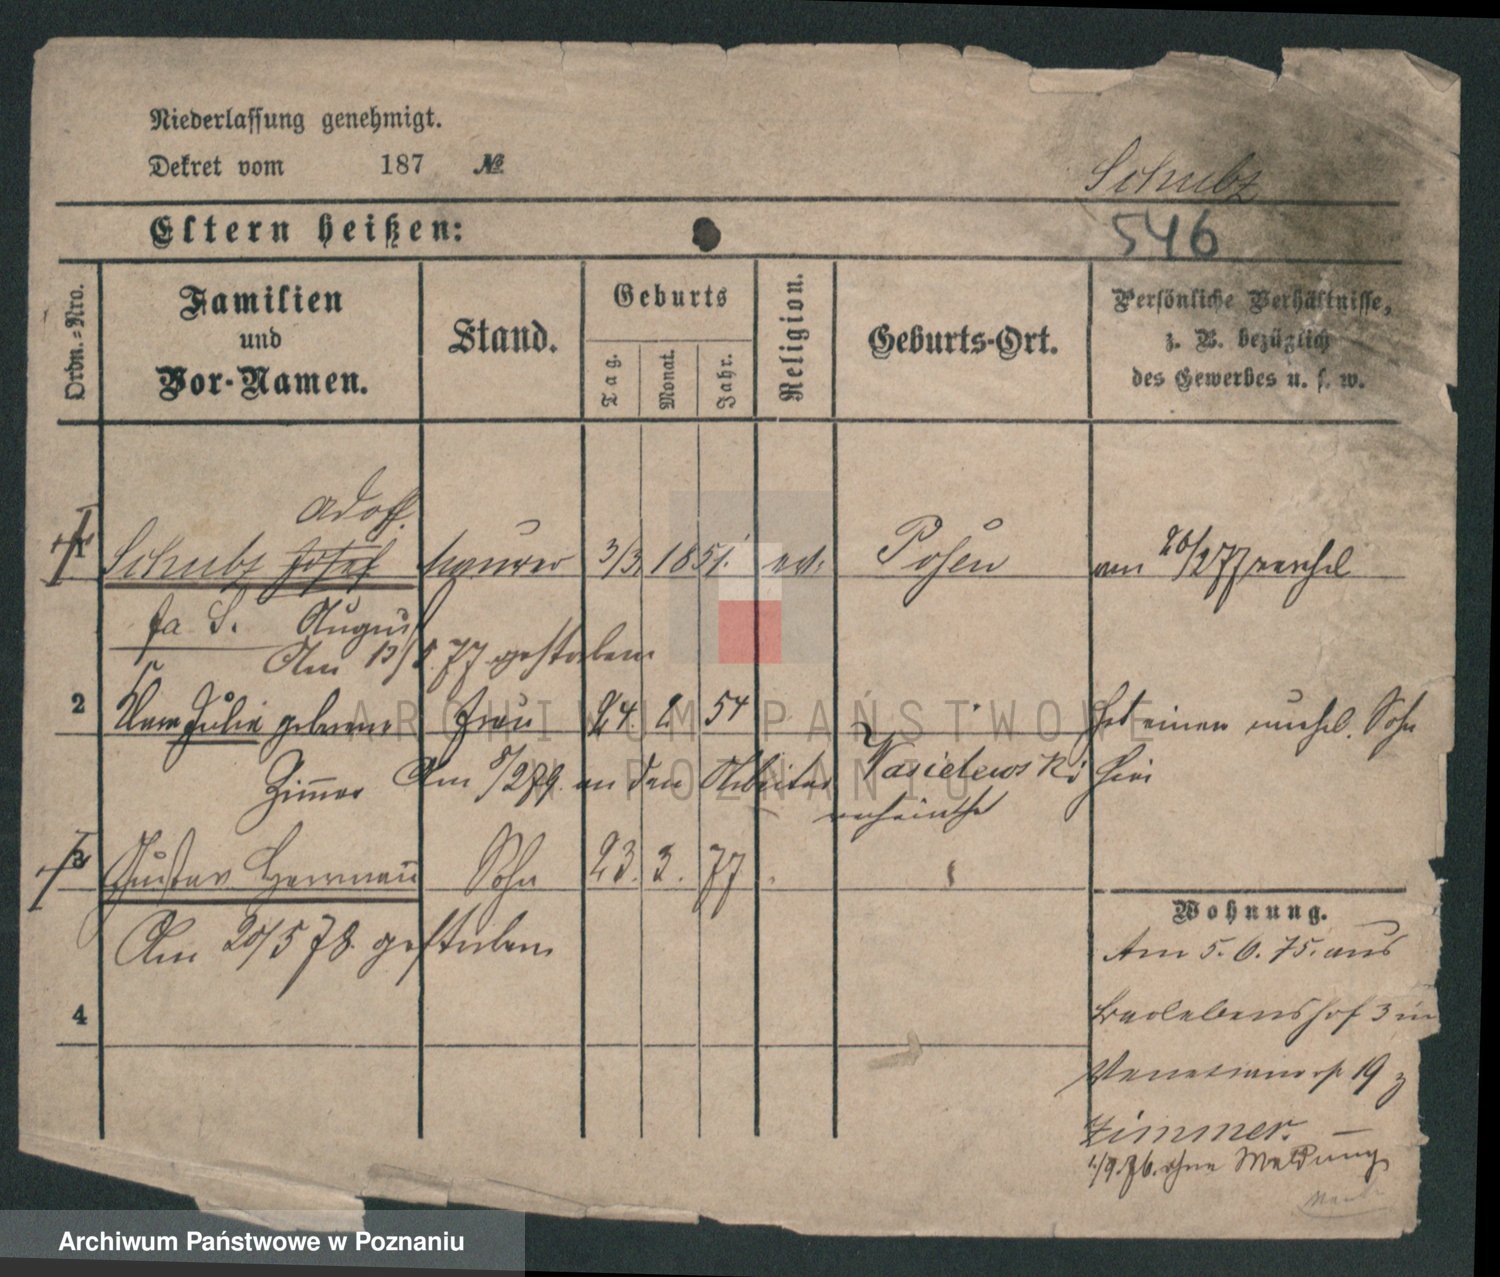 Niederlassung genehmigt.
Dekret vom 187 №
Schubz
Eltern heißen:
546
Ordn.-Nro.
Familien
und
Vor-Namen.
Stand.
Geburts
Tag.
Monat.
Jahr.
Religion.
Geburts-Ort.
Persönliche Verhältnisse,
z. B. bezüglich
des Gewerbes u. s. w.
Adolf
1 Schubz Josef Maurer 3/3. 1851. ev. Posen am 20/2 77
August
Am 13/ 77 gestorben
2 Julie geborene Frau 24. 2. 54 Hat einen unehel. Sohn
Zimmer Am 8/2 79. an den Arbeiter Wasielewski hier
3 Gustav Herrmann Sohn 23. 3. 77
Am 20/5 78. gestorben
4
Wohnung.
Am 5. 6. 75. aus
Berlebenshof 3 in
19 z
Zimmer. —
1/9. 76. ohne Meldung
ARCHIWUM PAŃSTWOWE
W POZNANIU
Archiwum Państwowe w Poznaniu